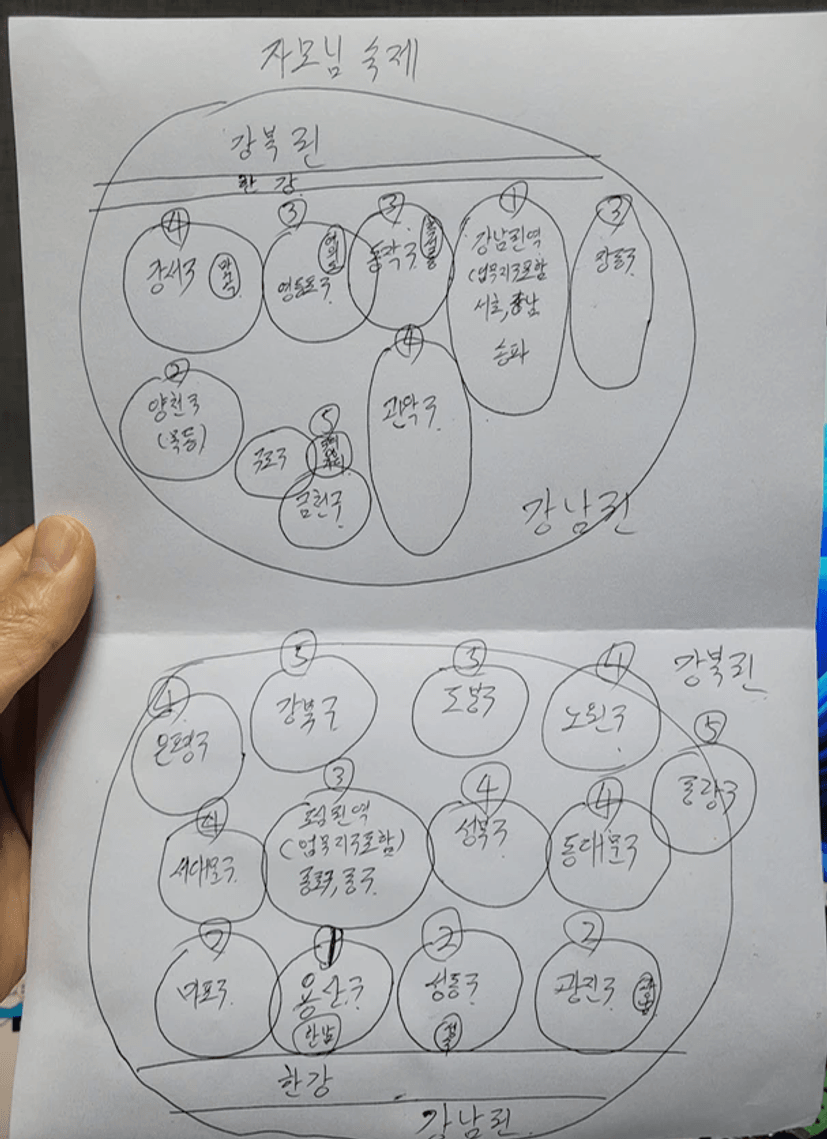 자모님 숙제
강북권
한강
④
강서구
마곡
③
영등포구
여의도
③
동작구
흑석동
①
강남권역
(업무지구포함
서초, 강남
송파
③
강동구
②
양천구
(목동)
⑤
구로구
금천구
④
관악구
강남권
강북권
④
은평구
⑤
강북구
⑤
도봉구
④
노원구
⑤
중랑구
④
서대문구
③
도심권역
(업무지구포함)
종로구, 중구
④
성북구
④
동대문구
②
마포구
1
용산구
한남
②
성동구
②
광진구
한강
강남권